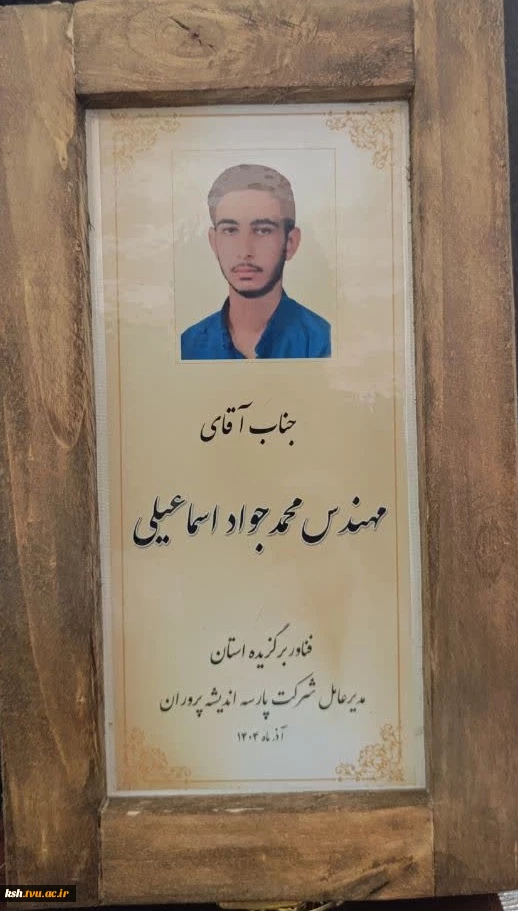 جناب آقای
مهندس محمد جواد اسماعیلی
فناور برگزیده استان
مدیرعامل شرکت پارسه اندیشه پروران
آذر ماه ۱۴۰۴
ksh.tvu.ac.ir